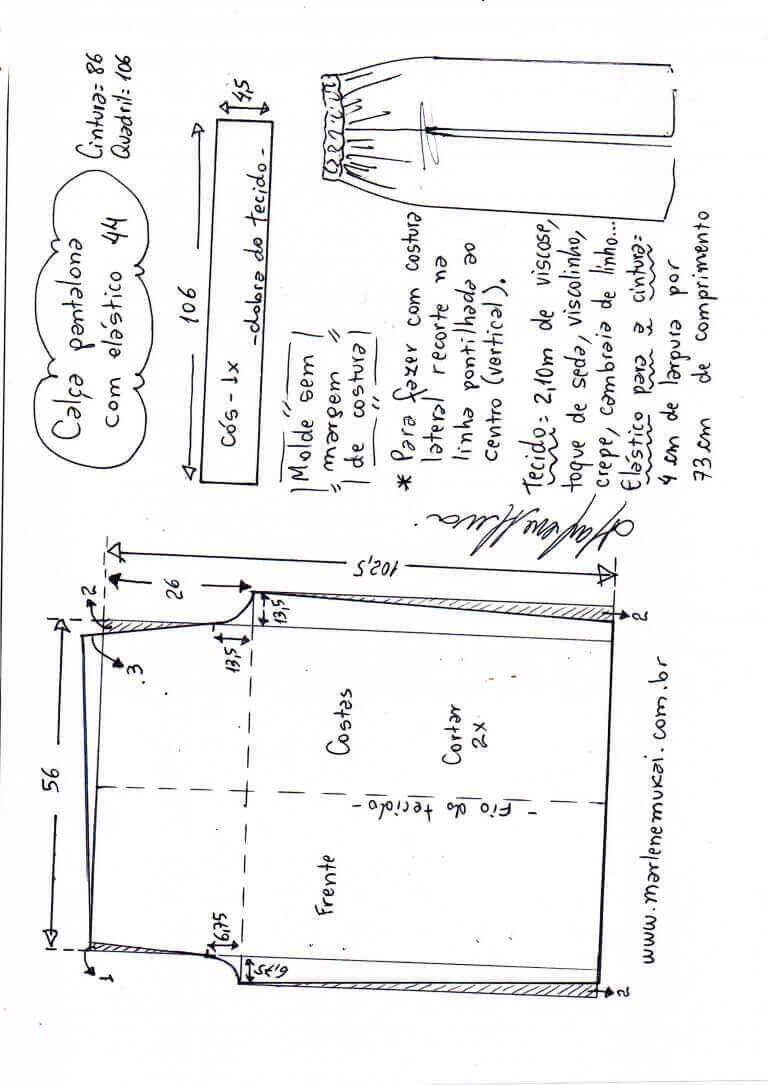 Calça pantalona
com elástico 44
Cintura = 86
Quadril = 106
106
4,5
cós - 1x
- dobra do tecido -
Molde sem
margem
de costura
* Para fazer com costura
lateral recorte na
linha pontilhada ao
centro (vertical).
Tecido = 2,10m de viscose,
toque de seda, viscolinho,
crepe, cambraia de linho...
Elástico para a cintura =
4 cm de largura por
73 cm de comprimento
56
1
3
2
26
102,5
6,75
6,75
13,5
13,5
Frente
Costas
- Fio do tecido -
Cortar
2x
2
2
www.marlenemukai.com.br